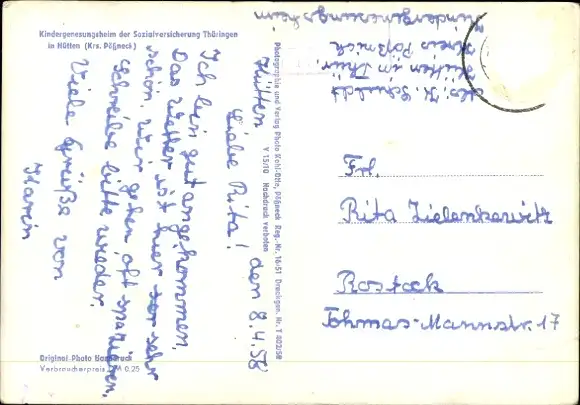 Kindergenesungsheim der Sozialversicherung Thüringen
in Hütten (Krs. Pößneck)
Hütten, den 8.4.58
Liebe Rita!
Ich bin gut angekommen.
Das Wetter ist hier sehr
schön. Wir gehen oft spazieren.
Schreibe bitte wieder.
Viele Grüße von
Karin
Original-Photo Handdruck
Verbraucherpreis DM 0.25
Photographie und Verlag Photo Kahl-Otte, Pößneck Reg.-Nr. 16/51 Druckgen. Nr. T 802/58
V 15/10 Nachdruck verboten
Abs. K.
Hütten in Thür.
Kreis Pößneck
Kindergenesungsheim
Frl.
Rita Zielenkewitz
Rostock
Tohmas-Mannstr. 17